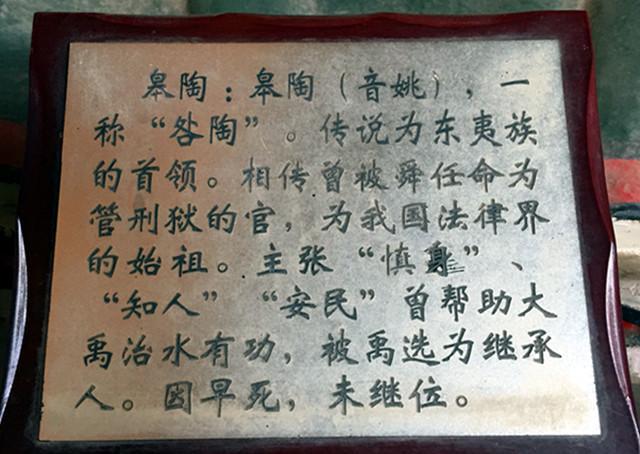 皋陶：皋陶（音姚），一
称“咎陶”。传说为东夷族
的首领。相传曾被舜任命为
管刑狱的官，为我国法律界
的始祖。主张“慎”、
“知人”“安民”曾帮助大
禹治水有功，被禹选为继承
人。因早死，未继位。